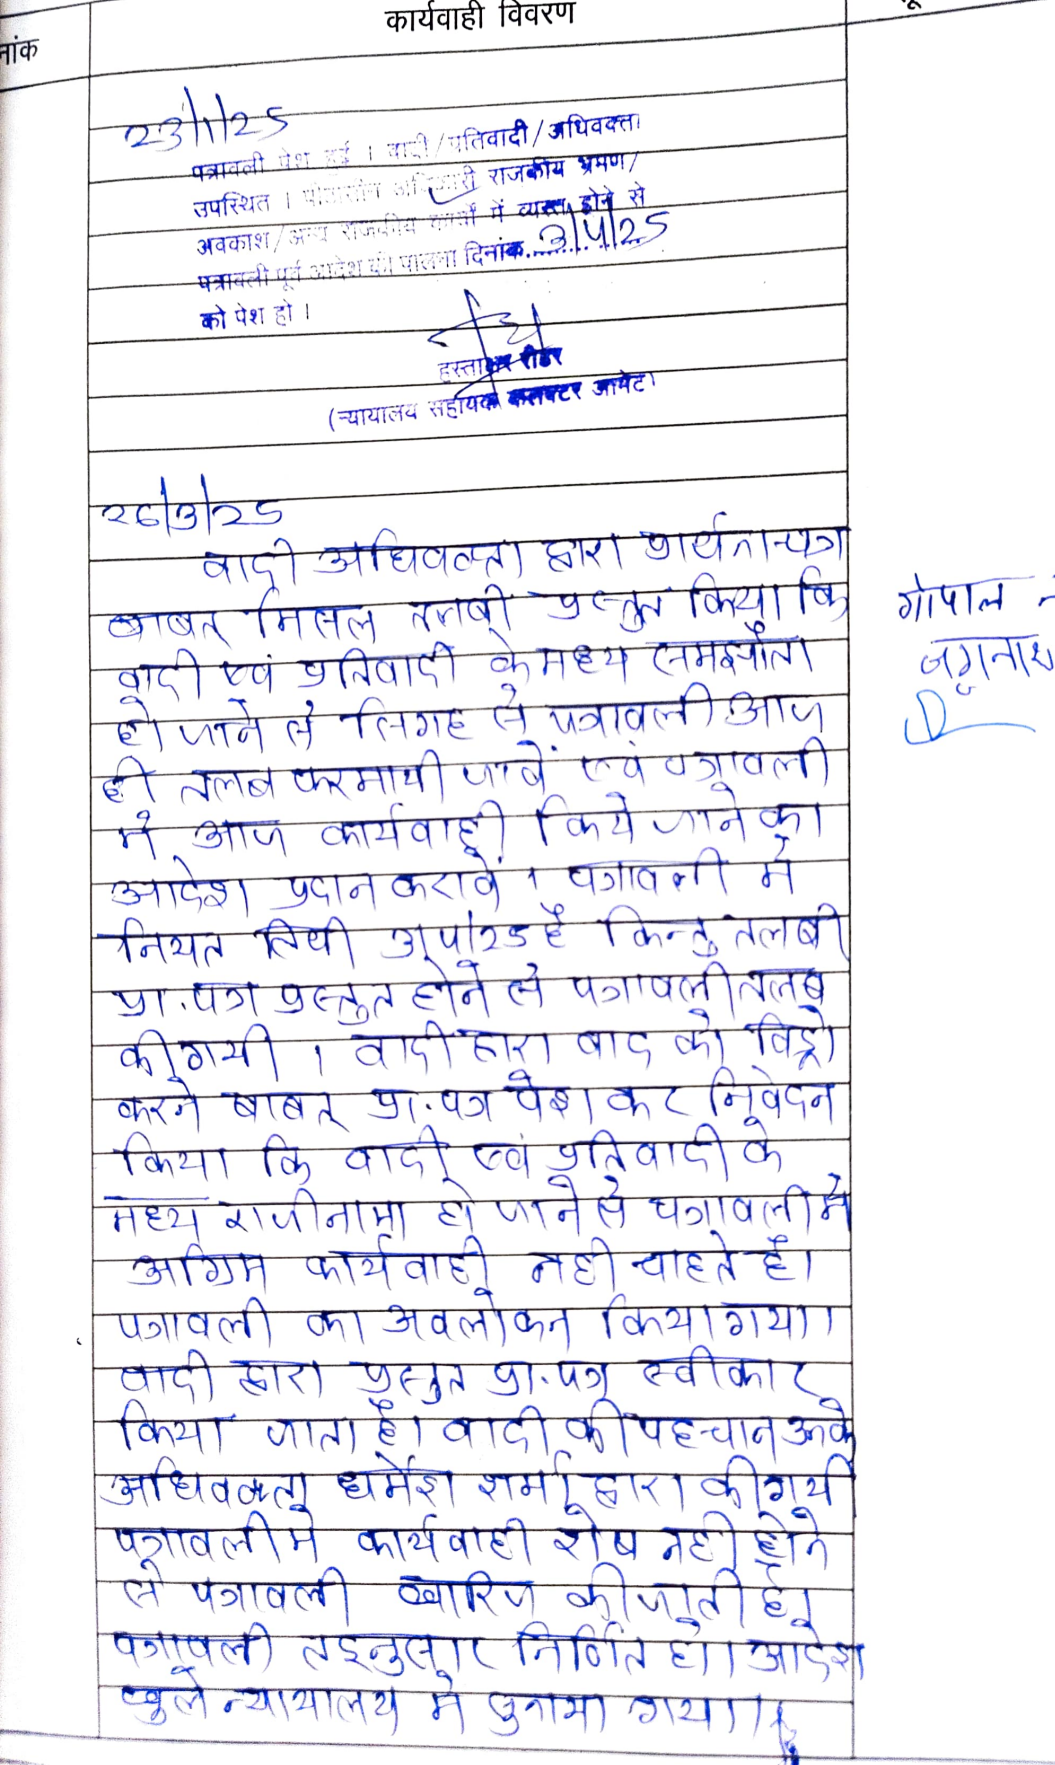 कार्यवाही विवरण
नांक
23/1/25
पत्रावली पेश हुई । वादी/प्रतिवादी/अधिवक्ता
उपस्थित । पीठासीन अधिकारी राजकीय भ्रमण/
अवकाश/अन्य राजकीय कार्यों में व्यस्त होने से
पत्रावली पूर्व आदेश की पालना दिनांक 3/4/25
को पेश हो ।
हस्ताक्षर रीडर
(न्यायालय सहायक कलक्टर आमेट)
26/3/25
वादी अधिवक्ता द्वारा प्रार्थना-पत्र
बाबत् मिसल तलबी प्रस्तुत किया कि
वादी एवं प्रतिवादी के मध्य समझौता
हो जाने से सिगह से पत्रावली आज
ही तलब फरमायी जावें एवं पत्रावली
में आज कार्यवाही किये जाने का
आदेश प्रदान करावें । पत्रावली में
नियत तिथी 3/4/25 है किन्तु तलबी
प्रा.पत्र प्रस्तुत होने से पत्रावली तलब
की गयी । वादी द्वारा वाद को विड्रो
करने बाबत् प्रा.पत्र पेश कर निवेदन
किया कि वादी एवं प्रतिवादी के
मध्य राजीनामा हो जाने से पत्रावली में
अग्रिम कार्यवाही नही चाहते है।
पत्रावली का अवलोकन किया गया।
वादी द्वारा प्रस्तुत प्रा.पत्र स्वीकार
किया जाता है। वादी की पहचान उनके
अधिवक्ता धर्मेश शर्मा द्वारा की गयी
पत्रावली मे कार्यवाही शेष नही होने
से पत्रावली खारिज की जाती है।
पत्रावली तद्नुसार निर्णित हो। आदेश
खुले न्यायालय में सुनाया गया।
गोपाल
जगनाथ